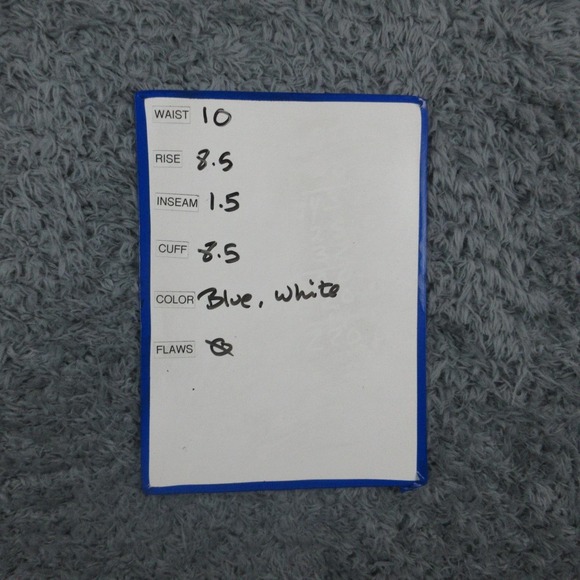 WAIST 10
RISE 8.5
INSEAM 1.5
CUFF 8.5
COLOR Blue, White
FLAWS Ø